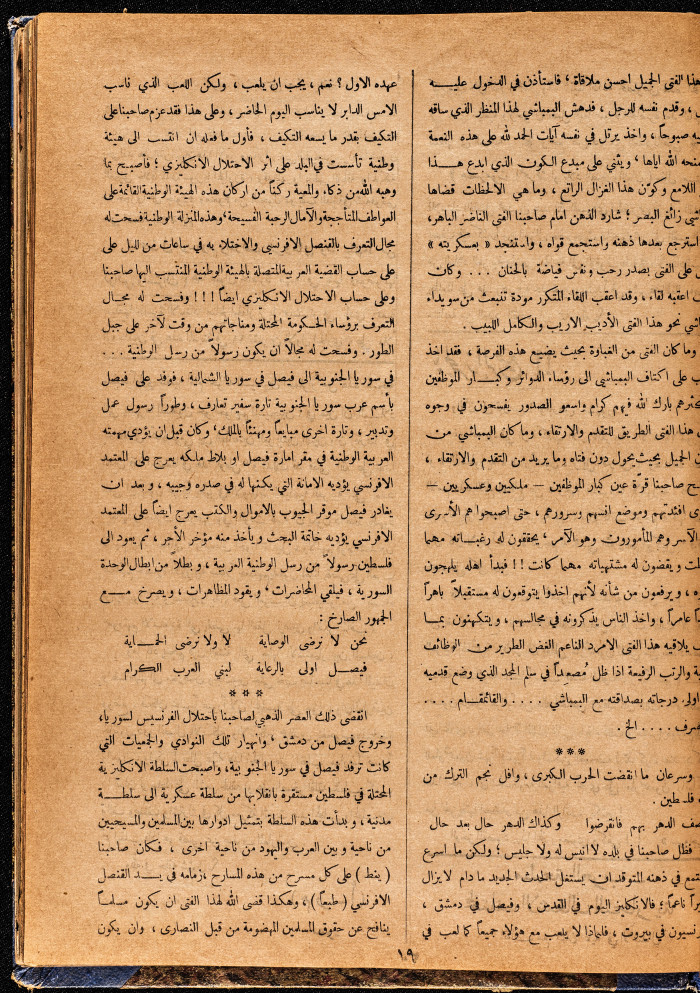 هذا الفتى الجميل احسن ملاقاة ؛ فاستأذن في الدخول عليــه
، وقدم نفسه للرجل ، فدهش البيمباشي لهذا المنظر الذي ساقه
صبوحاً ، واخذ يرتل في نفسه آيات الحمد لله على هذه النعمة
الله اياها ؛ ويثني على مبدع الكون الذي ابدع هـــذا
اللامع وكوّن هذا الغزال الراتع ، وما هي الالحظات قضاها
زائغ البصر ؛ شارد الذهن امام صاحبنا الفتى الناضر الباهر،
استرجع بعدها ذهنه واستجمع قواه ، واستنجد « بعسكريته »
على الفتى بصدر رحب ونفس فياضة بالحنان . . . وكان
اعقبه لقاء ، وقد اعقب اللقاء المتكرر مودة تنبعث من سويداء
نحو هذا الفتى الأديب الاريب والكامل اللبيب .
وما كان الفتى من الغباوة بحيث يضيع هذه الفرصة ، فقد اخذ
على اكتاف البيمباشى الى رؤساء الدوائر وكبـــار الموظفين
بارك الله فيهم كرام واسعو الصدور يفسحون في وجوه
هذا الفتى الطريق للتقدم والارتقاء ، وما كان البيمباشي من
الجميل بحيث يحول دون فتاه وما يريد من التقدم والارتقاء ،
صاحبنا قرّة عين كبار الموظفين — ملكيين وعسكريين —
افئدتهم وموضع انسهم وسرورهم ، حتى اصبحوا هم الأسرى
الآسر وهم المأمورون وهو الآمر ؛ يحققون له رغبــاته مهما
ويقضون له مشتهياته مهما كانت !! فبدأ اهله يلهجون
، ويرفعون من شأنه لأنهم اخذوا يتوقعون له مستقبلاً باهراً
عامراً ، واخذ الناس يذكرونه في مجالسهم ، ويتكهنون بمــا
يلاقيه هذا الفتى الامرد الناعم الغض الطرير من الوظائف
والرتب الرفيعة اذا ظل مُصعِداً في سلم المجد الذي وضع قدميه
اولى درجاته بصداقته مع البيمباشي . . . . والقائمقام . . . .
. . . . الخ .
***
وسرعان ما انقضت الحرب الكبرى ، وافل نجم الترك من
فلسطين .
الدهر بهم فانقرضوا وكذاك الدهر حال بعد حال
فظل صاحبنا في بلده لا انيس له ولا جليس ؛ ولكن ما اسرع
في ذهنه المتوقد ان يستغل الحدث الجديد ما دام لا يزال
ناعماً ؛ فالانكليز اليوم في القدس ، وفيصل في دمشق ،
في بيروت ، فلماذا لا يلعب مع هؤلاء جميعاً كما لعب في
عهده الاول ؟ نعم ، يجب ان يلعب ، ولكن اللعب الذي ناسب
الامس الدابر لا يناسب اليوم الحاضر ، وعلى هذا فقد عزم صاحبنا على
التكيف بقدر ما يسعه التكيف ، فأول ما فعله ان انتسب الى هيئة
وطنية تأسست في البلد على اثر الاحتلال الانكليزي ؛ فأصبح بما
وهبه الله من ذكاء والمعية ركناً من اركان هذه الهيئة الوطنية القائمة على
العواطف المتأججة والآمال الرحبة الفسيحة ؛ وهذه المنزلة الوطنية فسحت له
مجال التعرف بالقنصل الافرنسي والاختلاء به في ساعات من لليل على
على حساب القضية العربية المتصلة بالهيئة الوطنية المنتسب اليها صاحبنا
وعلى حساب الاحتلال الانكليزي ايضاً ! ! ! وفسحت له مجــال
التعرف برؤساء الحكومة المحتلة ومناجاتهم من وقت لآخر على جبل
الطور . وفسحت له مجالاً ان يكون رسولاً من رسل الوطنية . . .
في سوريا الجنوبية الى فيصل في سوريا الشمالية ، فوفد على فيصل
بأسم عرب سوريا الجنوبية تارة سفير تعارف ، وطوراً رسول عمل
وتدبير ، وتارة اخرى مبايعاً ومهنئاً بالملك ؛ وكان قبل ان يؤدي مهمته
العربية الوطنية في مقر امارة فيصل او بلاط ملكه يعرج على المعتمد
الافرنسي يؤديه الامانة التي يكنها له في صدره وجيبه ، وبعد ان
يغادر فيصل موقر الجيوب بالاموال والكتب يعرج ايضاً على المعتمد
الافرنسي يؤديه خاتمة البحث ويأخذ منه مؤخر الأجر ، ثم يعود الى
فلسطين رسولاً من رسل الوطنية العربية ، وبطلاً من ابطال الوحدة
السورية ، فيلقي المحاضرات ؛ ويقود المظاهرات ، ويصرخ مــع
الجمهور الصارخ :
نحن لا نرضى الوصاية لا ولا نرضى الحمـاية
فيصــل اولى بالرعاية لبني العرب الكرام
***
انقضى ذلك العصر الذهبي لصاحبنا باحتلال الفرنسيس لسوريا،
وخروج فيصل من دمشق ؛ وانهيار تلك النوادي والجمعيات التي
كانت ترفد فيصل في سوريا الجنوبية، واصبحت السلطة الانكليزية
المحتلة في فلسطين مستقرة بانقلابها من سلطة عسكرية الى سلطــة
مدنية ، وبدأت هذه السلطة بتمثيل ادوارها بين المسلمين والمسيحيين
من ناحية وبين العرب واليهود من ناحية اخرى ، فكان صاحبنا
( ينط ) على كل مسرح من هذه المسارح ، زمامه في يــد القنصل
الافرنسي ( طبعاً ) ، وهكذا قضى الله لهذا الفتى ان يكون مسلمــاً
ينافح عن حقوق المسلمين المهضومة من قبل النصارى ، وان يكون
١٩